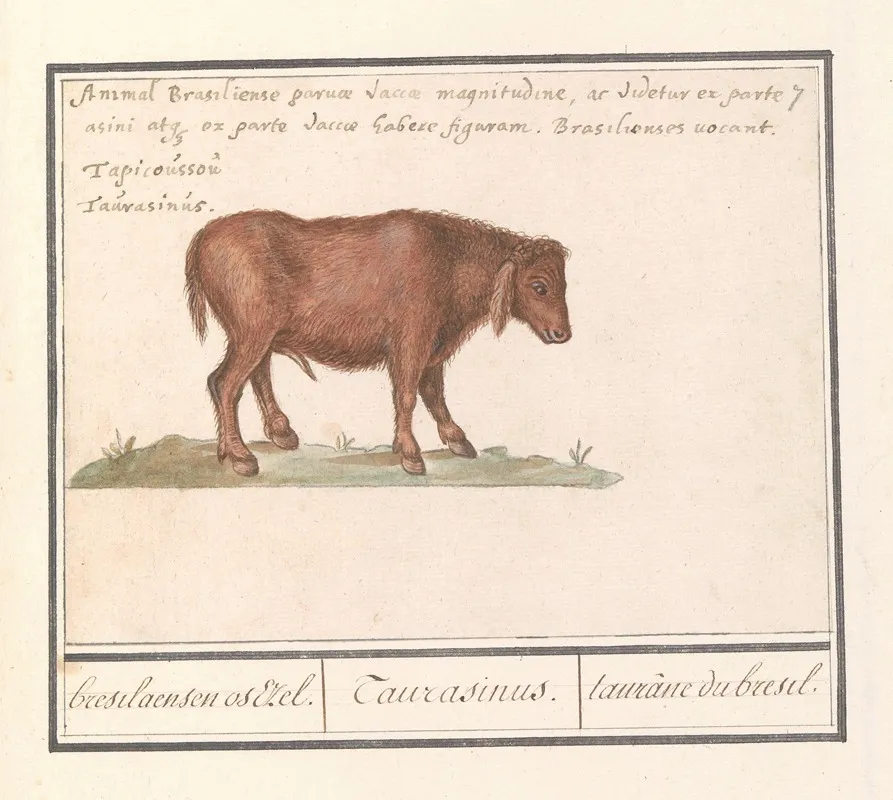 Animal Brasiliense paruæ vaccæ magnitudine, ac videtur ex parte 7
asini atq₃ ex parte vaccæ habere figuram. Brasilienses uocant.
Tapicoússoú
Taúrasinús.
bresilaensen os Ezel.
Taurasinus.
taurâne du bresil.